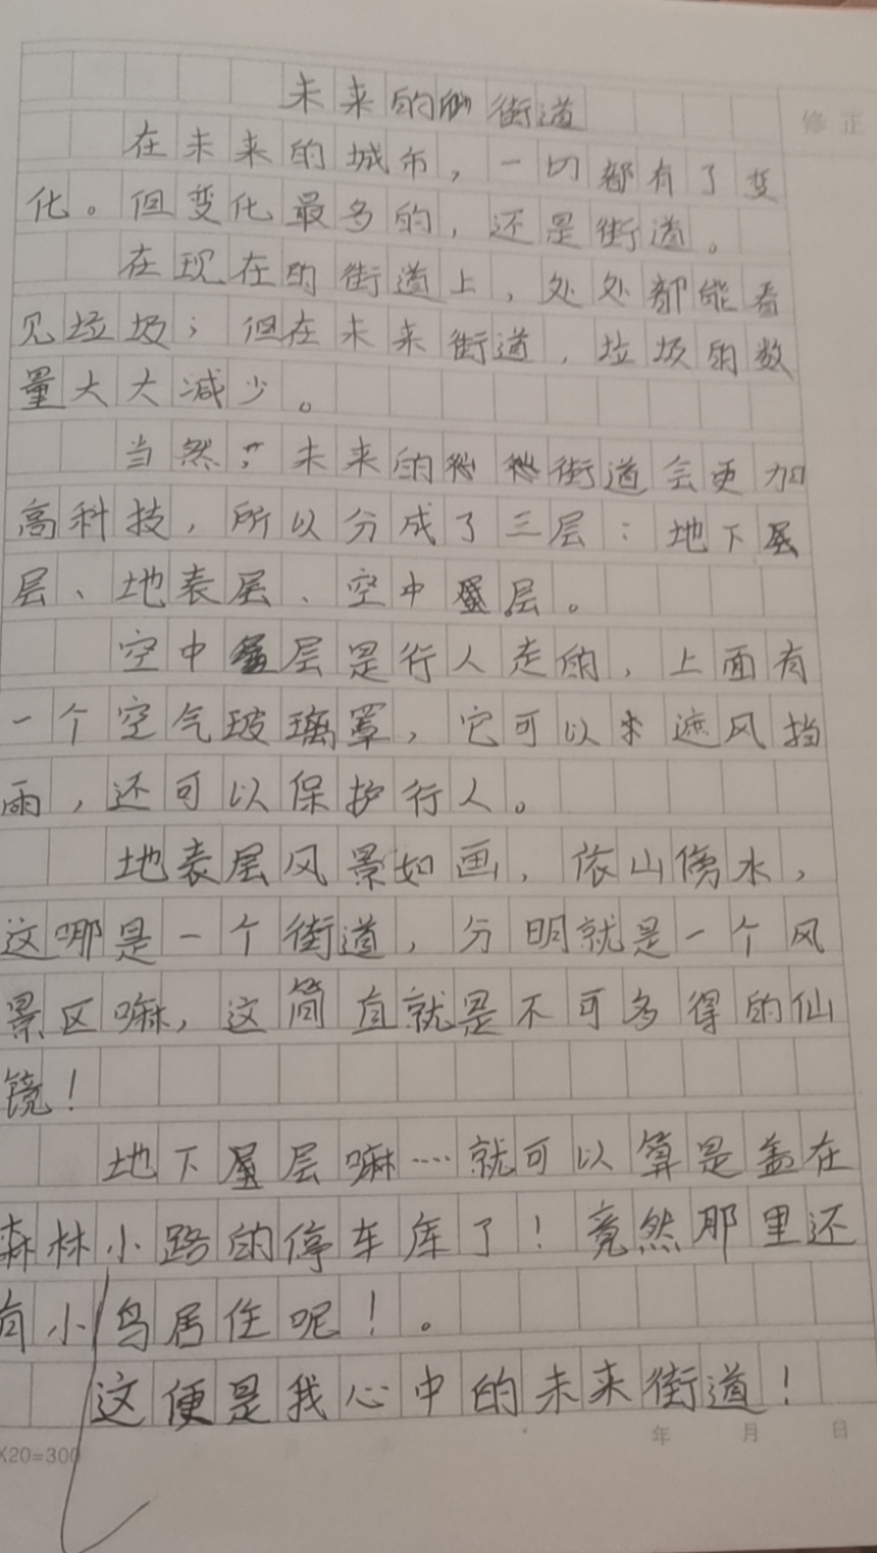 未来的街道
修正
在未来的城市，一切都有了变
化。但变化最多的，还是街道。
在现在的街道上，处处都能看
见垃圾；但在未来街道，垃圾的数
量大大减少。
当然，未来的街道会更加
高科技，所以分成了三层：地下
层、地表层、空中层。
空中层是行人走的，上面有
一个空气玻璃罩，它可以来遮风挡
雨，还可以保护行人。
地表层风景如画，依山傍水，
这哪是一个街道，分明就是一个风
景区嘛，这简直就是不可多得的仙
镜！
地下层嘛……就可以算是盖在
森林小路的停车库了！竟然那里还
有小鸟居住呢！。
这便是我心中的未来街道！
X20=300 年 月 日